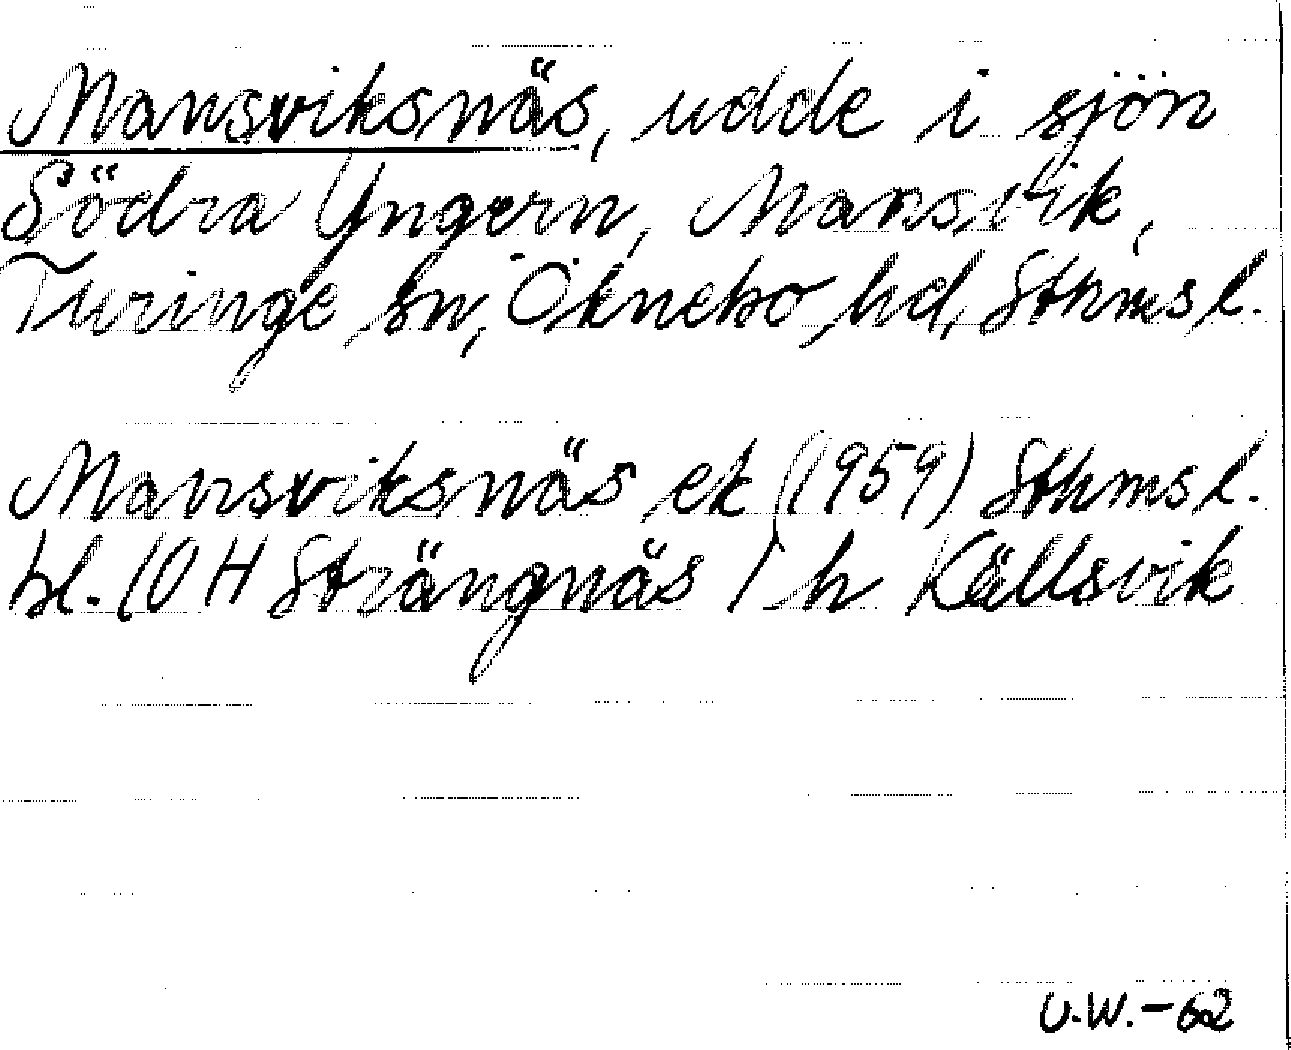 Mansviksnäs, udde i sjön
Södra Yngern, Mansvik,
Turinge sn, Öknebo hd, Sthms l.
Mansviksnäs ek (1959) Sthms l.
bl. 10 H Strängnäs 1 h Källsvik
U.W.-62